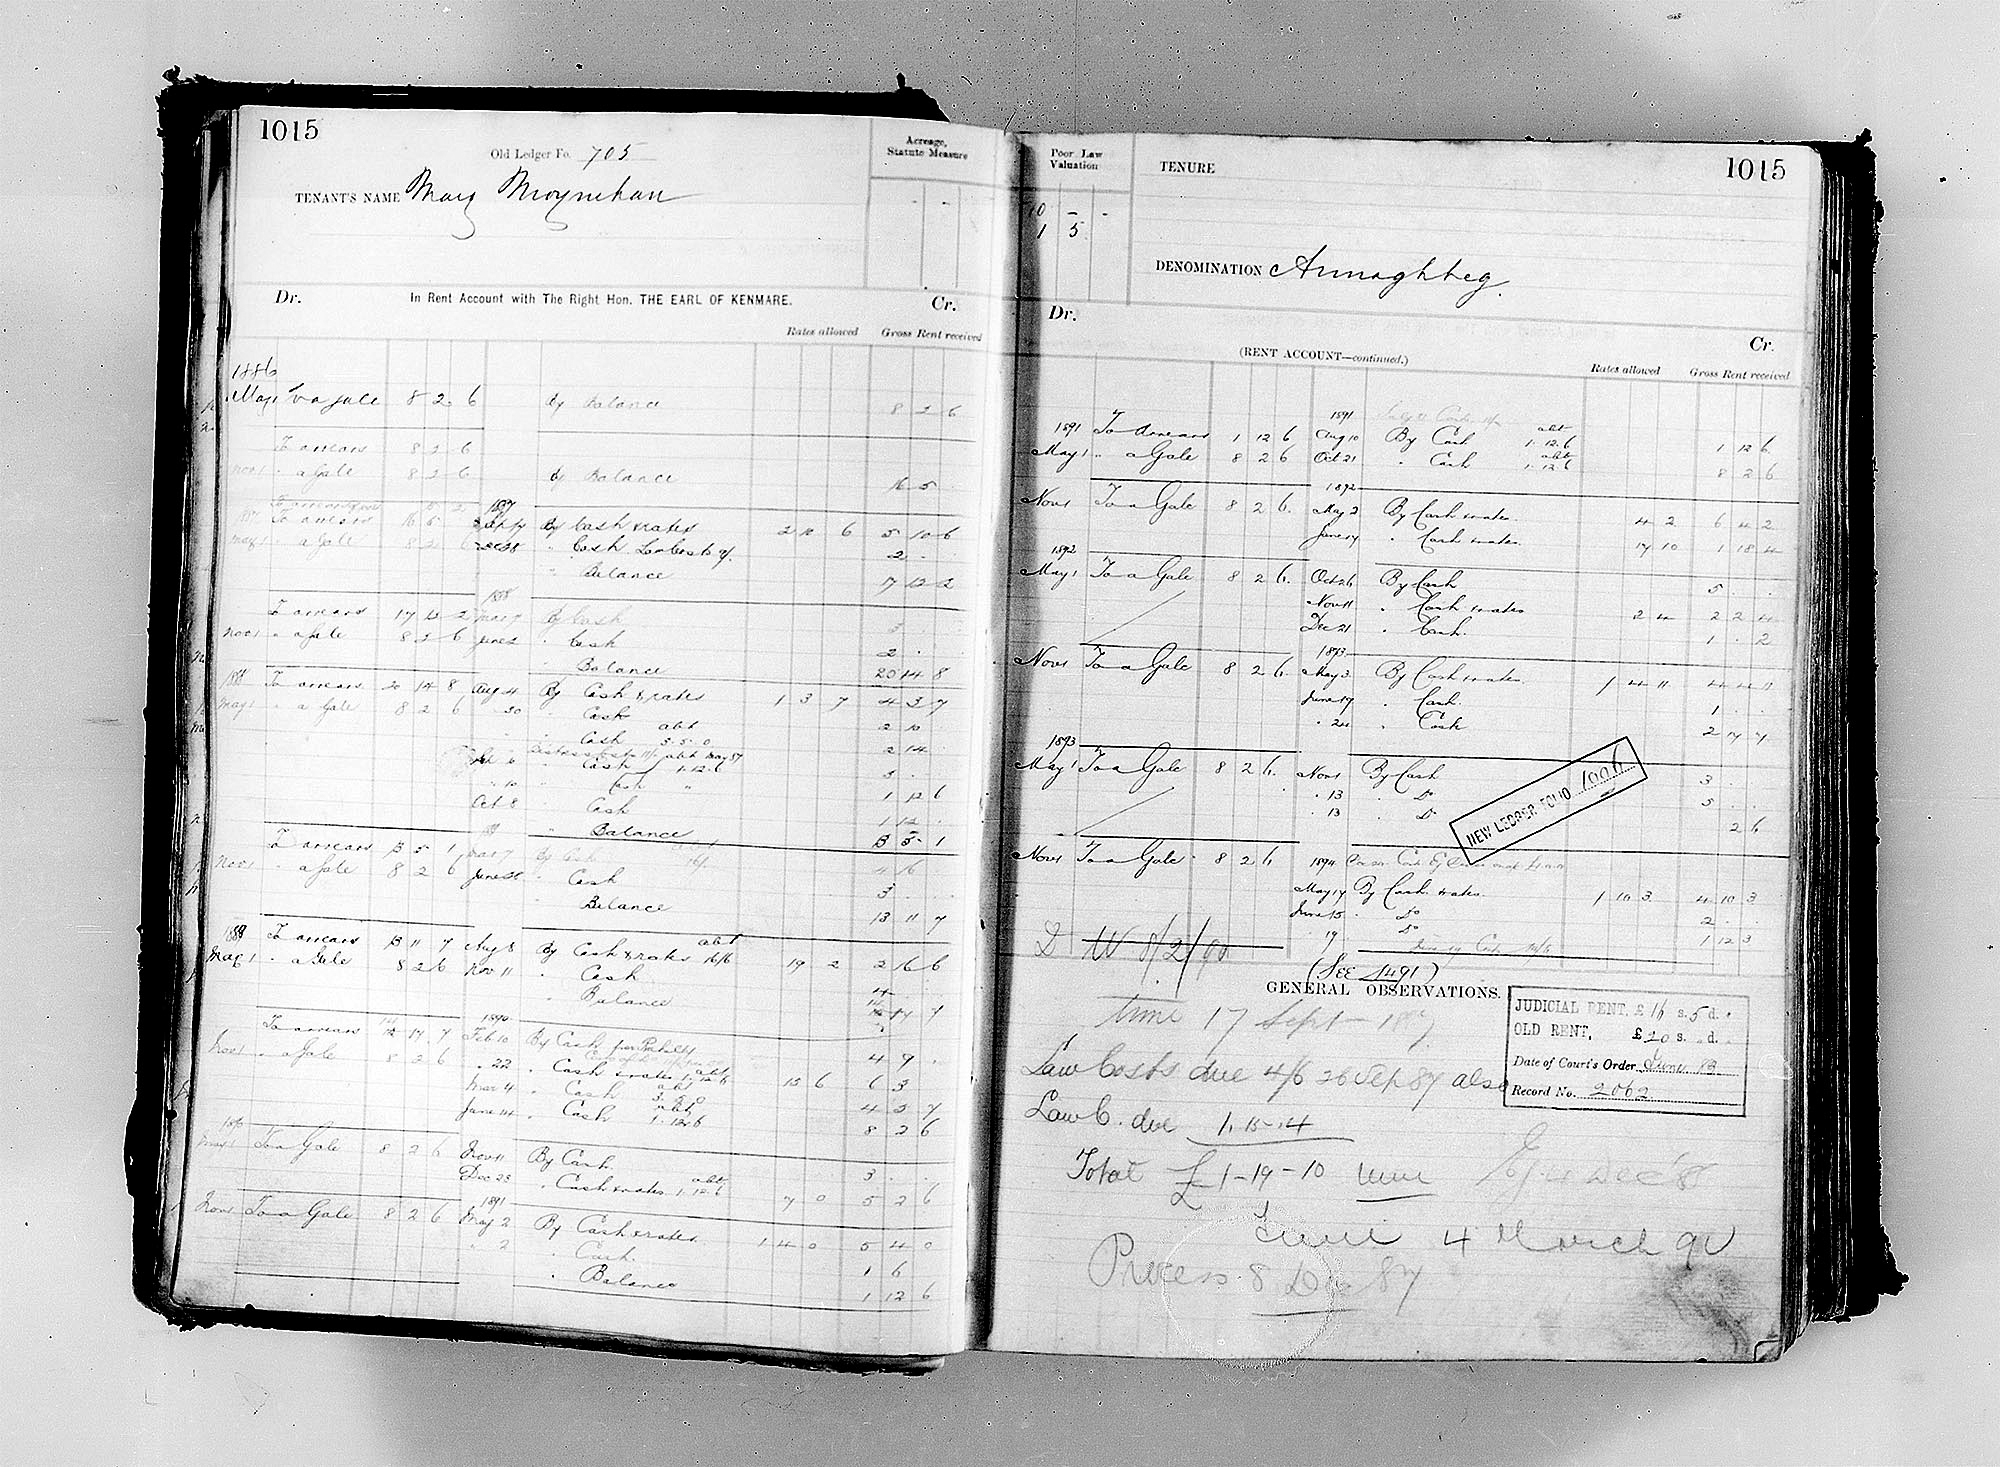 1015
Old Ledger Fo. 705
TENANT'S NAME Mary Moynihan
Acreage,
Statute Measure
Dr. In Rent Account with The Right Hon. THE EARL OF KENMARE. Cr.
Rates allowed Gross Rent received
1886
May 1 To a Gale 8 2 6 By Balance 8 2 6
To arrears 8 2 6
Nov 1 " a Gale 8 2 6 By Balance 16 5
1887
To arrears 16 5 By Cash & rates 2 10 6 5 10 6
May 1 " a Gale 8 2 6 " Cash 2 . .
" Balance 17 12 2
1888
To arrears 17 12 2 Mar 7 By Cash 3 . .
Nov 1 " a Gale 8 2 6 June 2 " Cash 2 . .
" Balance 20 14 8
1888 To arrears 20 14 8 Aug 4 By Cash & rates 1 3 7 4 3 7
May 1 " a Gale 8 2 6 " 30 " Cash 2 10
" Cash abt 5.5.0 2 14 .
" Cash 1.12.6 3 . .
" 10 " Cash " 1 12 6
Oct 8 " Cash 1 12 .
" Balance 13 5 1
To arrears 13 5 1 Mar 7 By Cash 4 16
Nov 1 " a Gale 8 2 6 June " Cash 3 . .
" Balance 13 11 7
1889 To arrears 13 11 7 Aug 8 By Cash & rates abt 16/6 19 2 2 16 6
May 1 " a Gale 8 2 6 Nov 11 " Cash 4 . .
" Balance 14 17 7
1890
To arrears 14 17 7 Feb 10 By Cash 4 9 .
Nov 1 " a Gale 8 2 6 " 22 " Cash & rates abt 1.12.6 15 6 6 3
Mar 4 " Cash abt 3.5.0 4 5 7
June 14 " Cash abt 1.12.6 8 2 6
1890
May 1 To a Gale 8 2 6 Nov 11 By Cash 3 . .
Dec 23 " Cash & rates abt 1.12.6 7 0 5 2 6
1891
Nov 1 To a Gale 8 2 6 May 2 By Cash & rates 1 4 0 5 4 0
" 2 " Cash 1 6
" Balance 1 12 6
Poor Law
Valuation
10 - -
1 5
TENURE
1015
DENOMINATION Annaghbeg.
Dr. (RENT ACCOUNT—continued.) Cr.
Rates allowed Gross Rent received
1891
1891 To Arrears 1 12 6 Aug 10 By Cash abt 1.12.6 1 12 6
May 1 " a Gale 8 2 6 Oct 21 " Cash abt 1.12.6 8 2 6
1892
Nov 1 To a Gale 8 2 6. May 2 By Cash & rates. 4 2 6 4 2
June 17 " Cash & rates. 17 10 1 18 4
1892
May 1 To a Gale 8 2 6. Oct 26 By Cash 5 . .
Nov 11 " Cash & rates 2 4 2 2 4
Dec 21 " Cash. 1 . 2
1893
Nov 1 To a Gale 8 2 6. May 3 By Cash & rates. 1 4 11 4 4 11
June 17 " Cash. 1 . .
" 24 " Cash 2 17 7
1893
May 1 To a Gale 8 2 6. Nov 1 By Cash 3 . .
" 13 " Do 5 . .
" 13 " Do 2 6
NEW LEDGER FOLIO 1006
Nov 1 To a Gale 8 2 6 1894
May 17 By Cash & rates. 1 10 3 4 10 3
June 15 " Do 2 . .
" 19 " Do 1 12 3
D W 8/2/90
(SEE 1491)
GENERAL OBSERVATIONS.
JUDICIAL RENT, £16 s. 5 d. .
OLD RENT, £20 s. . d. .
Date of Court's Order June 83
Record No. 2062
time 17 Sept 1887
Law Costs due 4/6 26 Sep 87 also
Law C. due 1.15.4
Total £1-19-10
4 Dec '88
4 March 90
Process 8 Dec 87